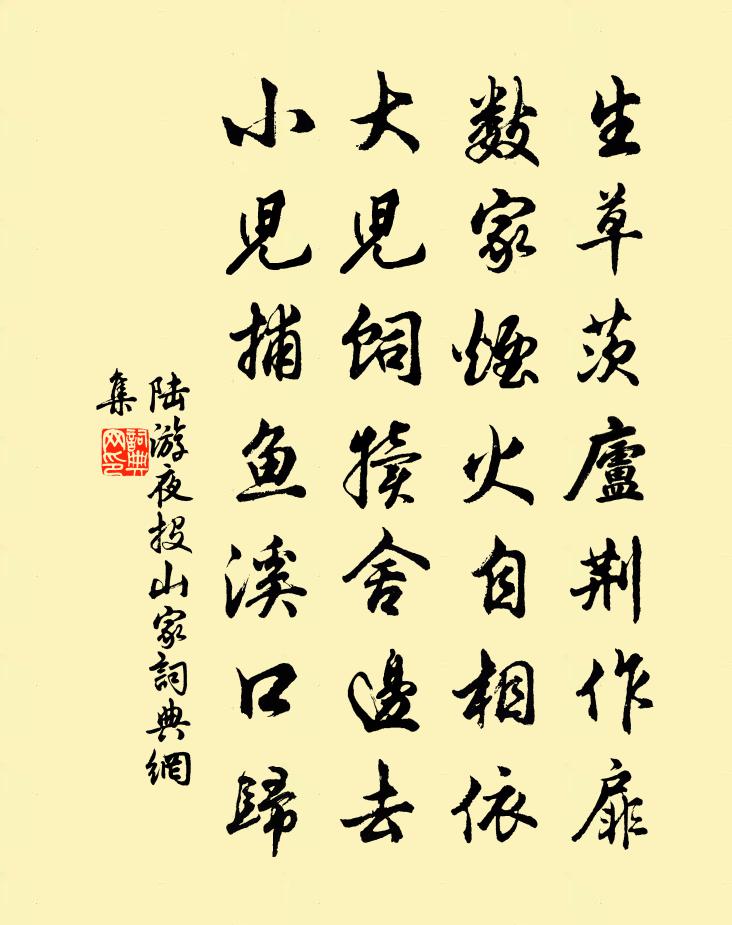 生草茨廬荆作扉
數家煙火自相依
大児飼犢舍邊去
小児捕魚溪口歸
陆游夜投山家詞典網
集
詞典
网印